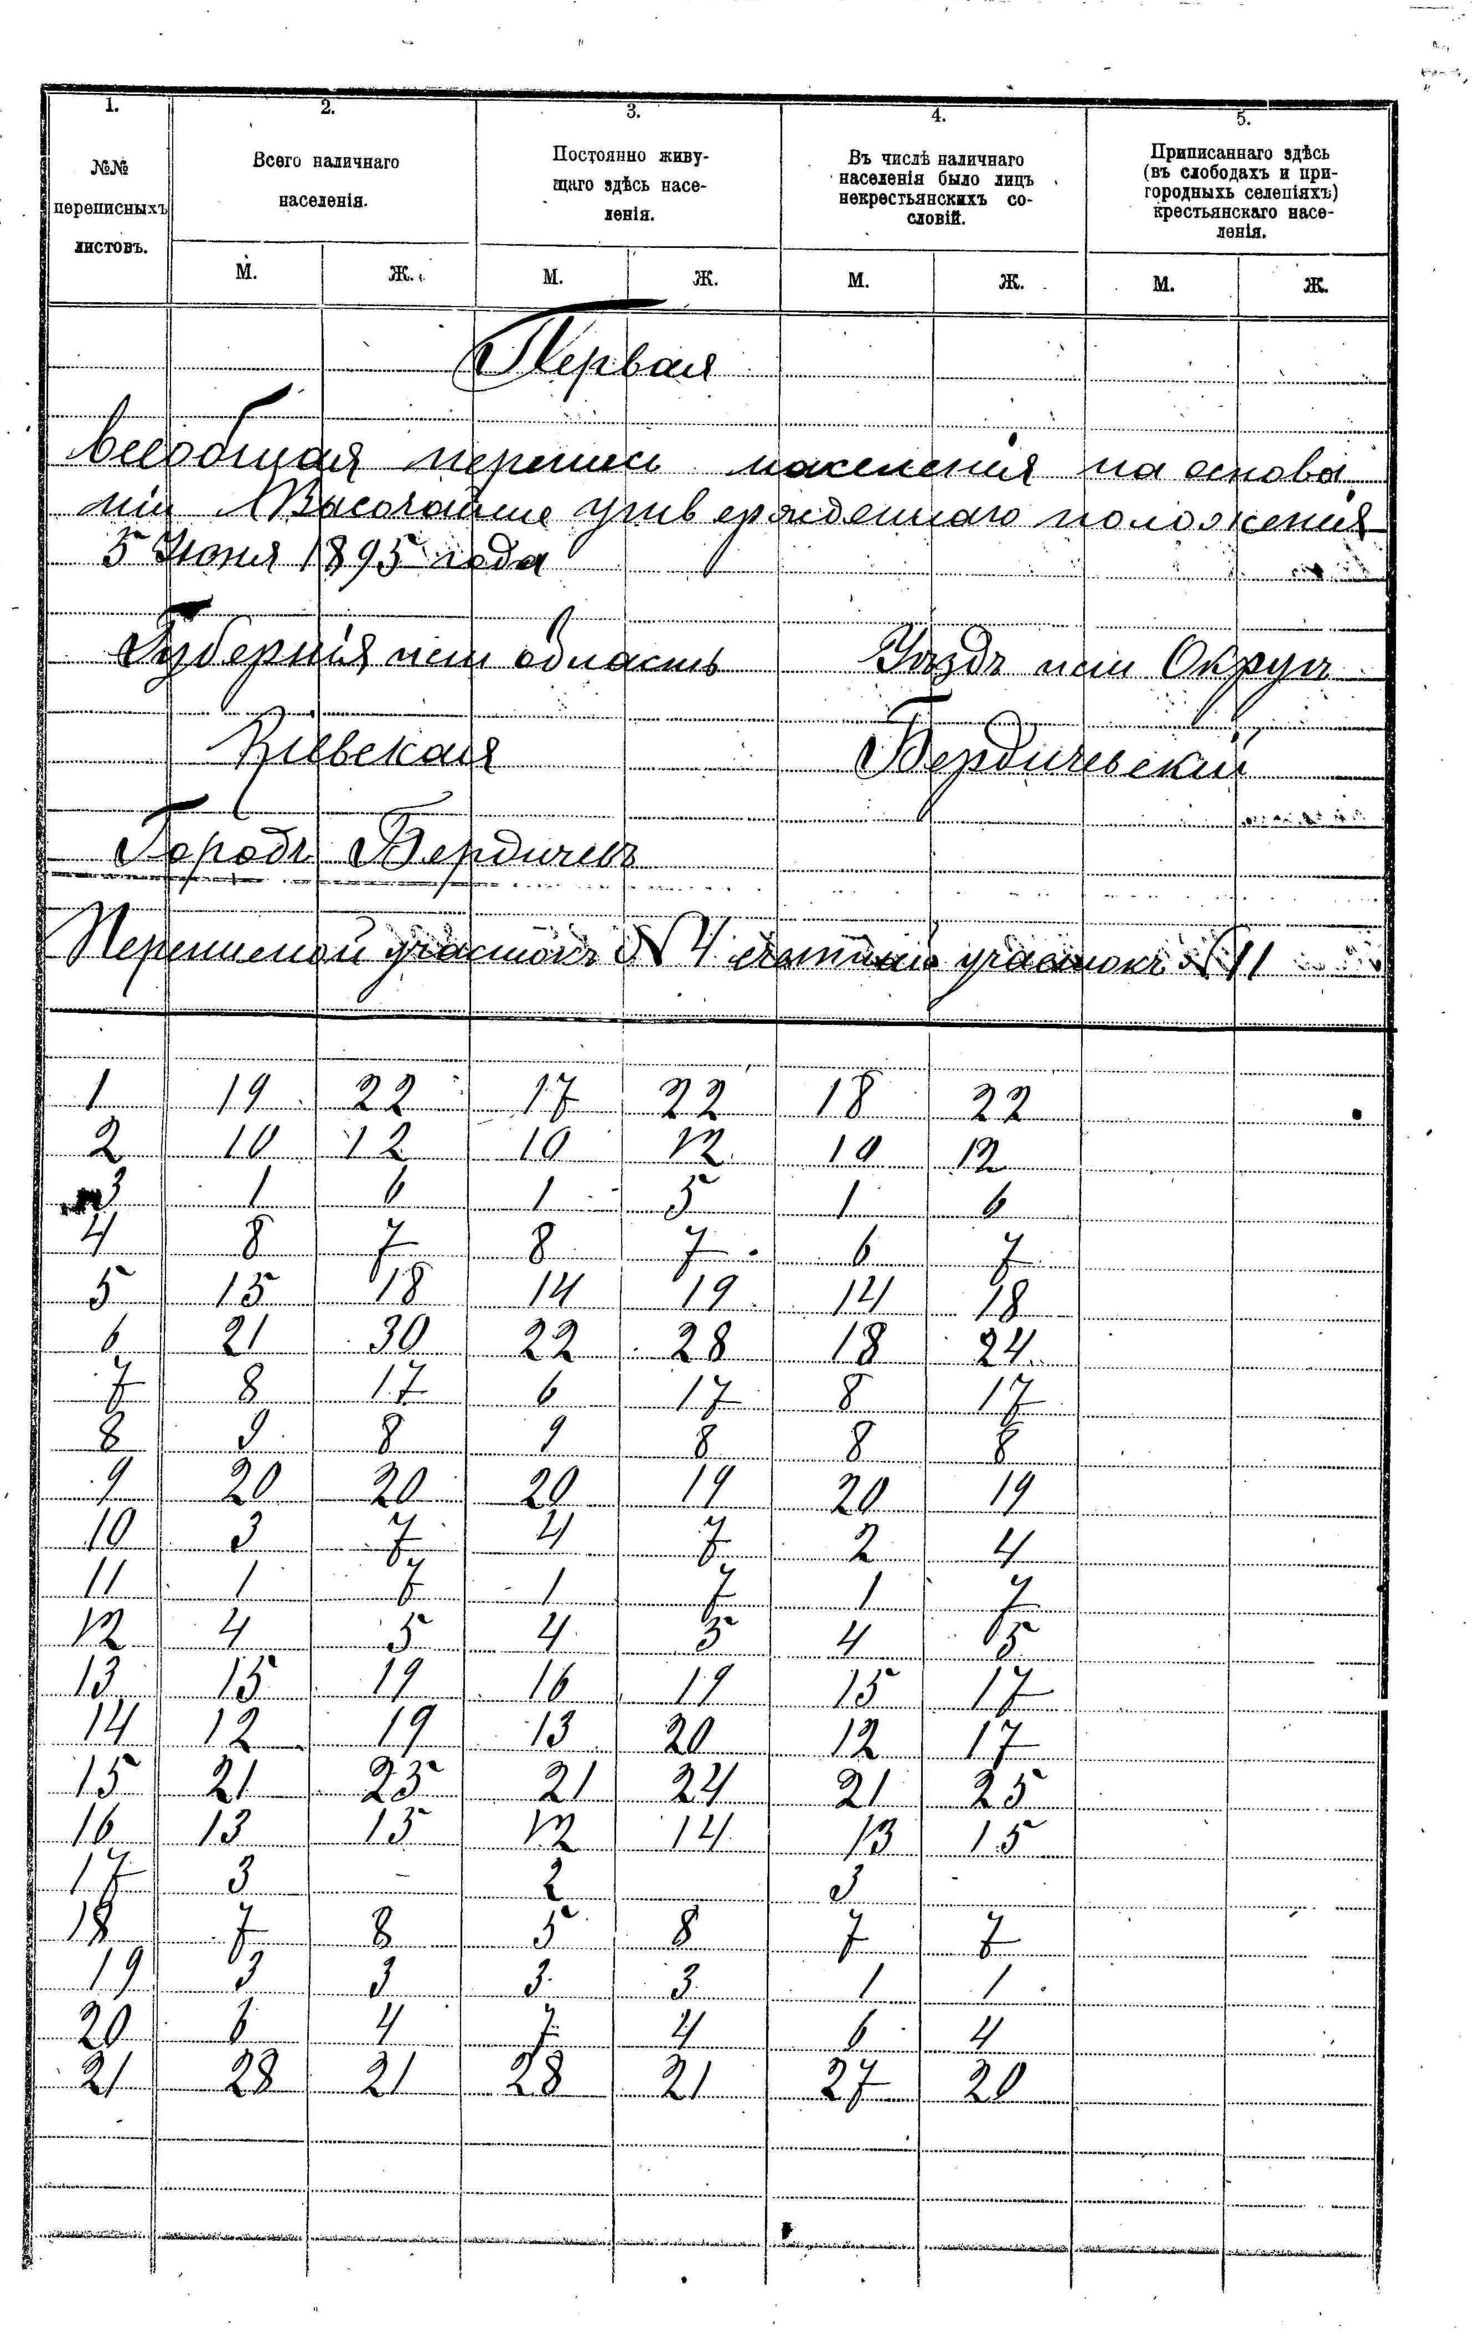 1. 2. 3. 4. 5.
№№ переписныхъ листовъ.
Всего наличнаго населенія.
Постоянно живу-
щаго здѣсь насе-
ленія.
Въ числѣ наличнаго
населенія было лицъ
некрестьянскихъ со-
словій.
Приписаннаго здѣсь
(въ слободахъ и при-
городныхъ селеніяхъ)
крестьянскаго насе-
ленія.
М. Ж. М. Ж. М. Ж. М. Ж.
Первая
всеобщая перепись населенія на основа
ніи Высочайше утвержденнаго положенія
5 Іюня 1895 года
Губернія или область Уѣздъ или Округъ
Кіевская Бердичевскій
Городъ Бердичевъ
Переписной участокъ № 4 счетный участокъ № 11
1 19 22 17 22 18 22
2 10 12 10 12 10 12
3 1 6 1 5 1 6
4 8 7 8 7 6 7
5 15 18 14 19 14 18
6 21 30 22 28 18 24
7 8 17 6 17 8 17
8 9 8 9 8 8 8
9 20 20 20 19 20 19
10 3 7 4 7 2 4
11 1 7 1 7 1 7
12 4 5 4 5 4 5
13 15 19 16 19 15 17
14 12 19 13 20 12 17
15 21 25 21 24 21 25
16 13 15 12 14 13 15
17 3 - 2 3
18 7 8 5 8 7 7
19 3 3 3 3 1 1
20 6 4 7 4 6 4
21 28 21 28 21 27 20